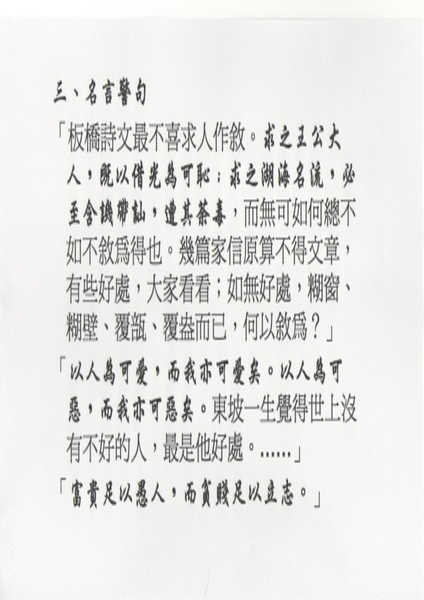 三、名言警句
「板橋詩文最不喜求人作敘。求之王公大
人，既以借光為可恥；求之湖海名流，必
至含譏帶訕，遭其荼毒，而無可如何總不
如不敘爲得也。幾篇家信原算不得文章，
有些好處，大家看看；如無好處，糊窗、
糊壁、覆瓿、覆盎而已，何以敘爲？」
「以人為可愛，而我亦可愛矣。以人為可
惡，而我亦可惡矣。東坡一生覺得世上沒
有不好的人，最是他好處。……」
「富貴足以愚人，而貧賤足以立志。」